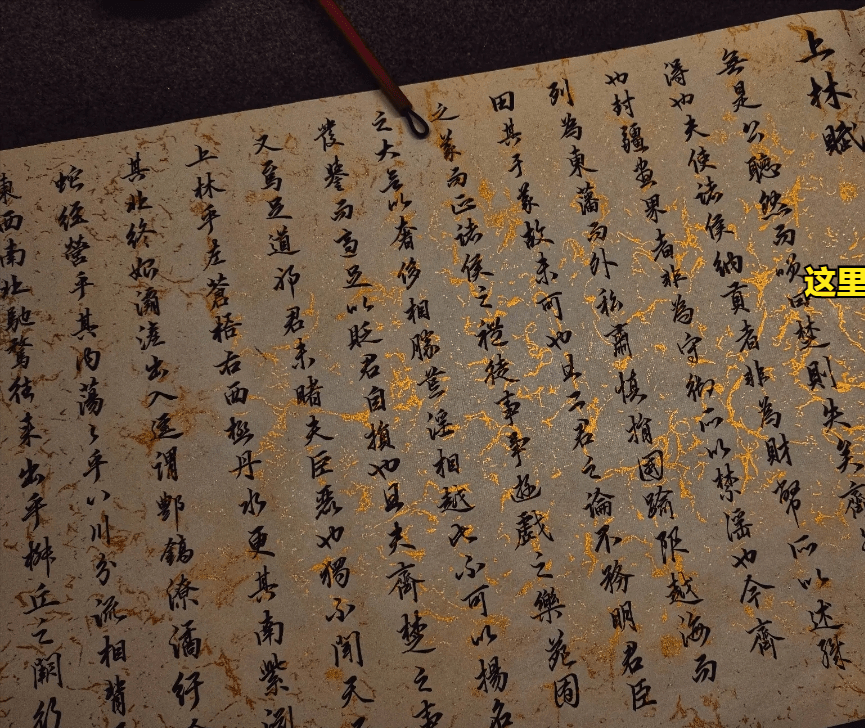 上林賦
無是公聽然而唉曰楚則失矣齊
得也夫使諸侯納貢者非為財幣所以述職
也封疆畫界者非為守禦所以禁淫也今齊
列為東藩而外私肅慎捐國踰限越海而
田其于義故未可也且二君之論不務明君臣
之義而正諸侯之禮徒事爭遊戲之樂苑囿
之大無以奢侈相勝荒淫相越此不可以揚名
發譽而適足以貶君自損也且夫齊楚之事
又焉足道邪君未睹夫巨麗也獨不聞天
上林乎左蒼梧右西極丹水更其南紫淵
其北終始灞滻出入涇渭酆鎬潦潏紆
蛇經營乎其內蕩〻乎八川分流相背
東西南北馳騖往來出乎椒丘之闕行
这里